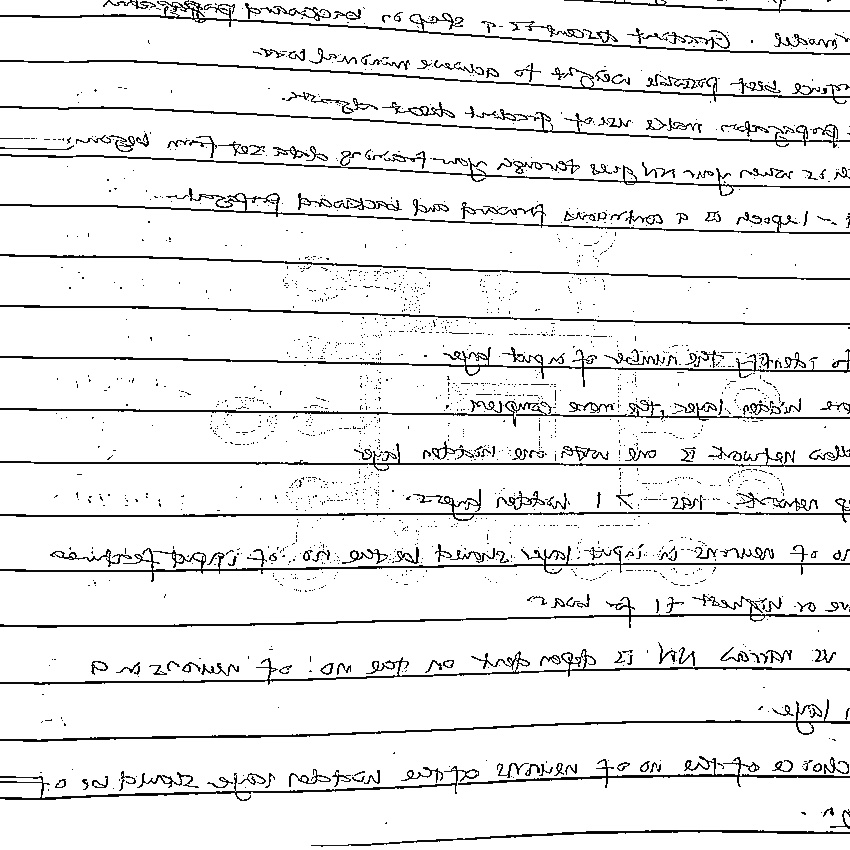 model. Gradient descent is a step on backward propagation
best possible weights to achieve minimal loss
propagation makes use of gradient descent algorithm.
is when your NN goes through your training data set from begining
- 1 epoch is a continuous forward and backward propagation
to identify the number of input layer.
hidden layer, the more complex.
network is one with one hidden layer
network has > 1 hidden layers.
no of neurons in input layer should be the no. of input features
or highest +1 for bias
vs narrow NN is dependent on the no. of neurons in a
layer.
choice of the no of neurons of the hidden layer should be of